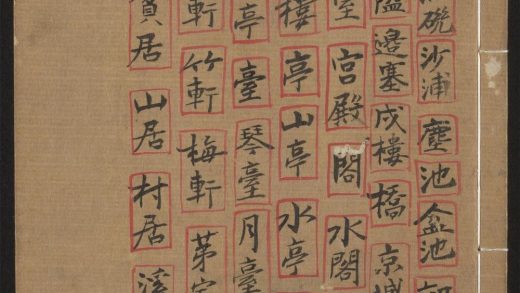 沙浦 塵池 盆池
隘 邊塞 戍樓 橋 京城
室 宮殿 閣 水閣
樓 亭 山亭 水亭
亭 臺 琴臺 月臺
軒 竹軒 梅軒 苐
居 山居 村居 溪